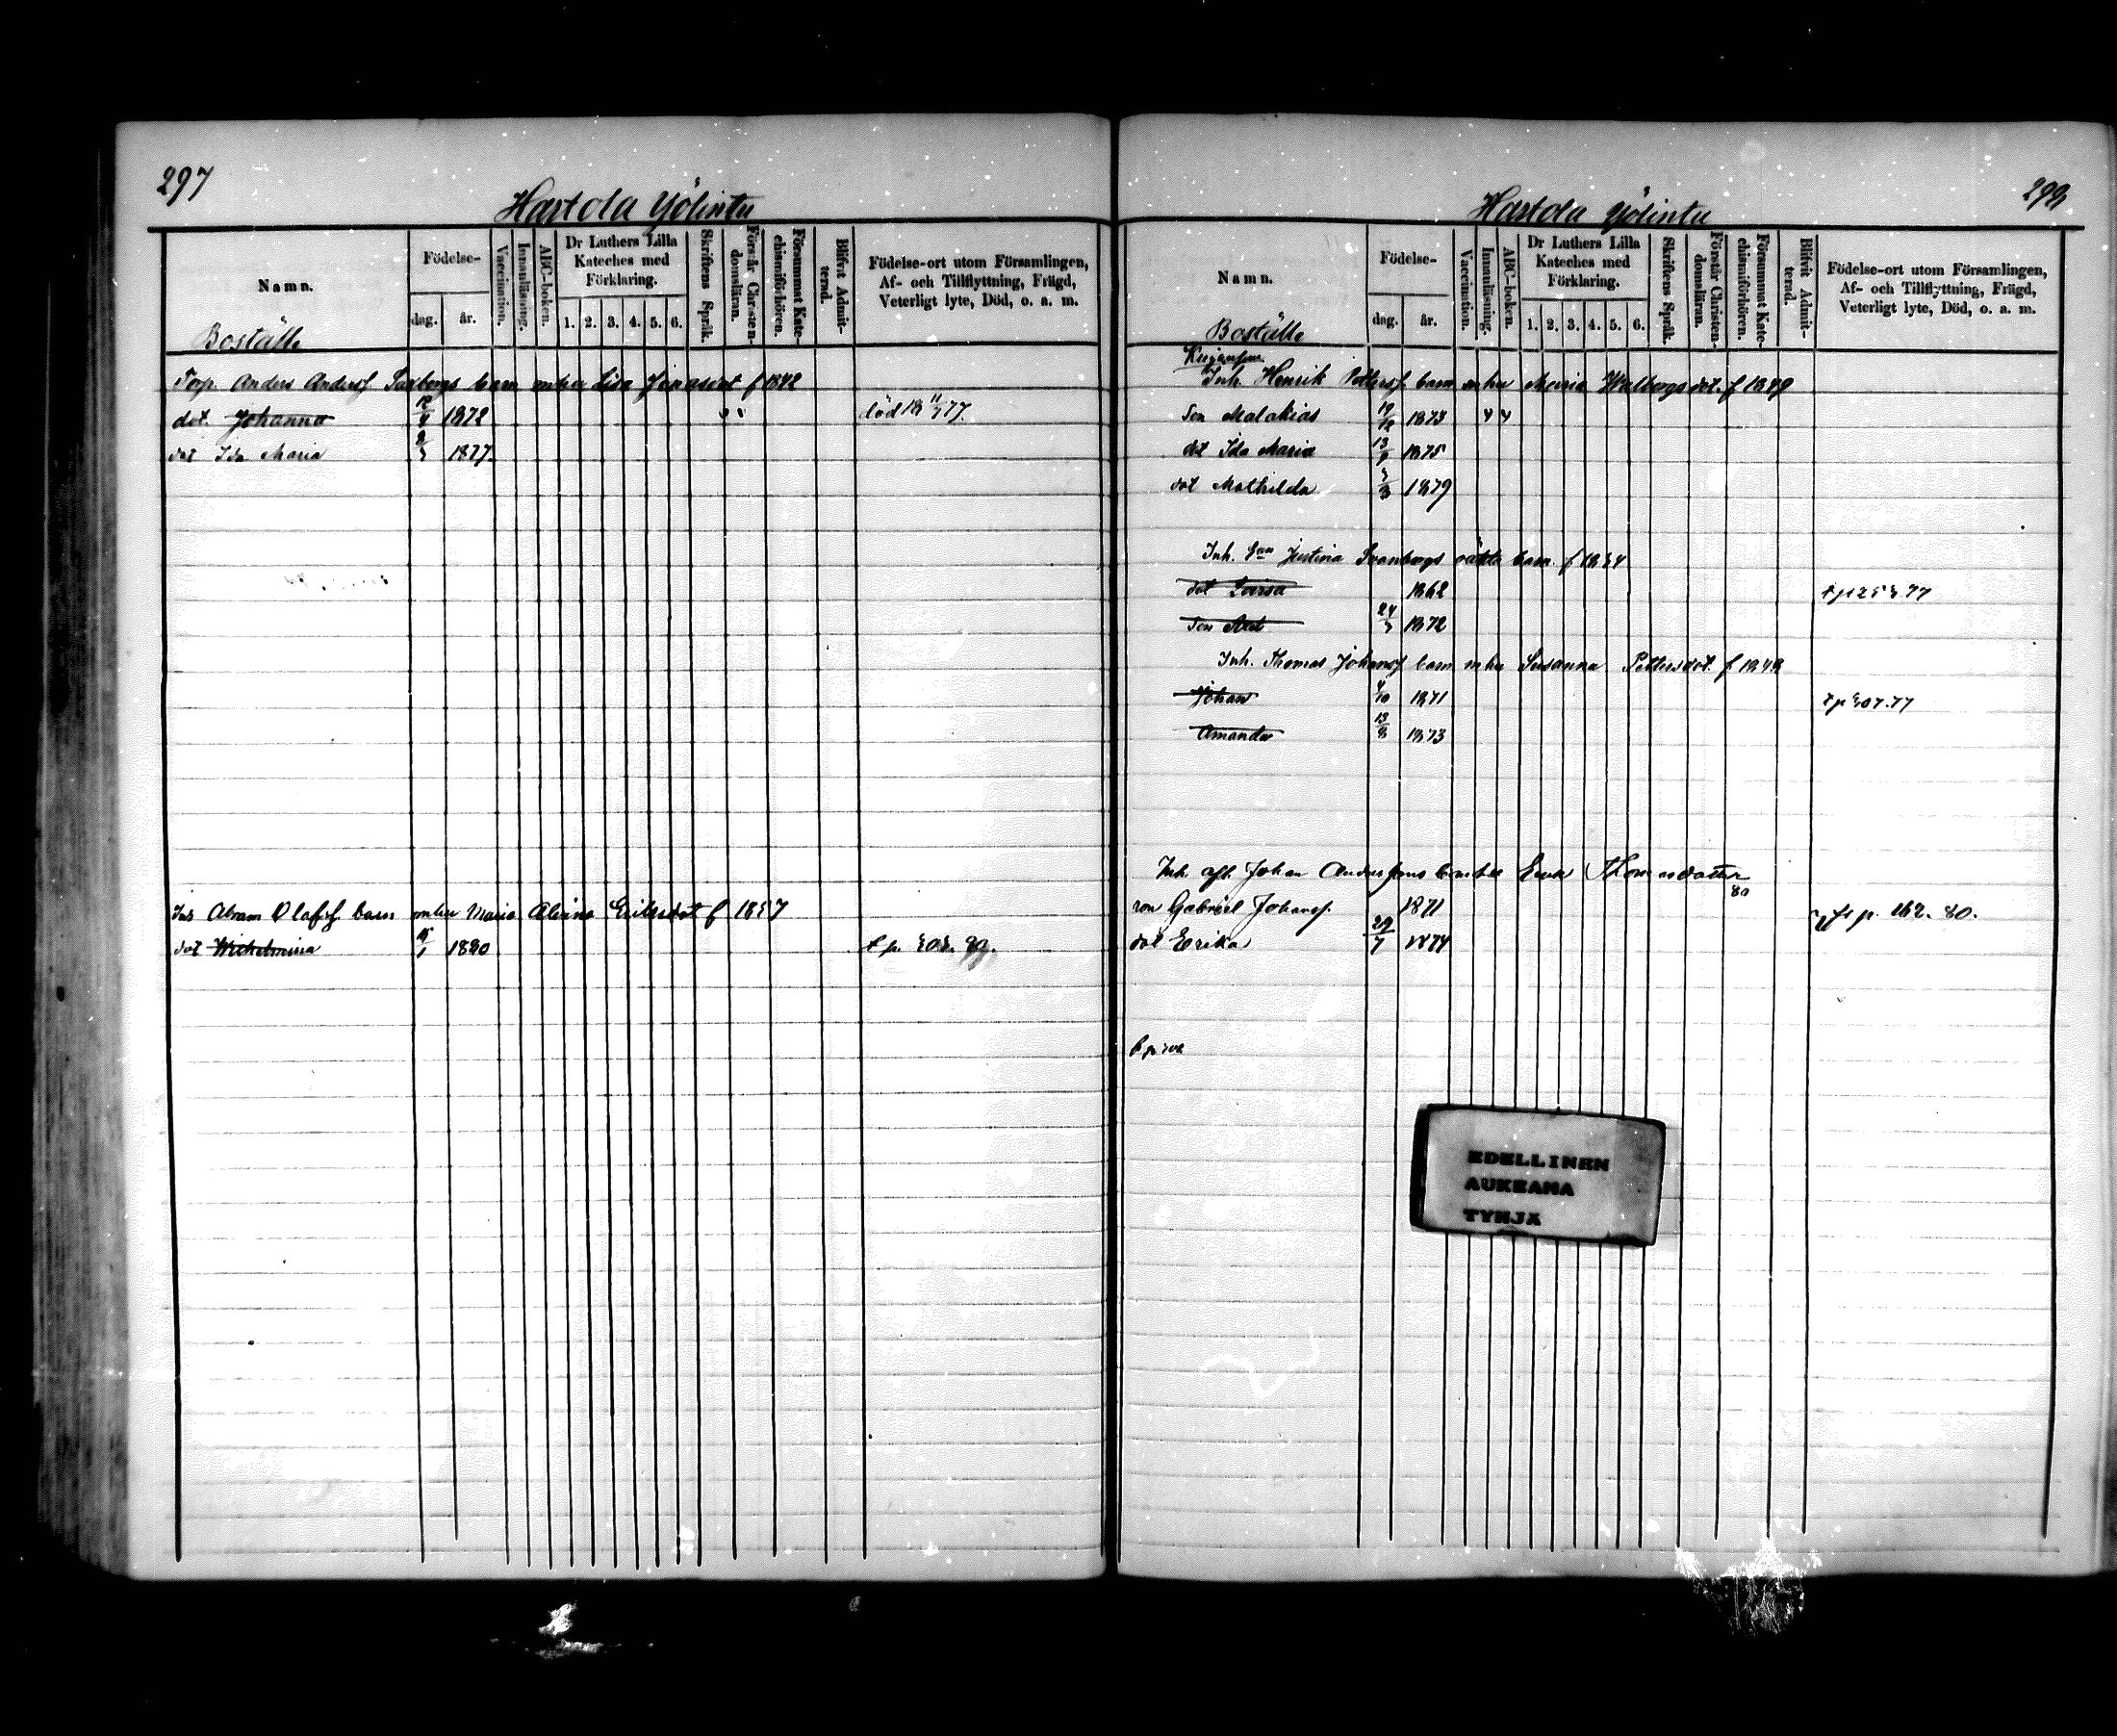 297
Hartola Yölintu
Namn.
Födelse-
dag.
år.
Vaccination.
Innanläsning.
ABC-boken.
Dr Luthers Lilla Kateches med Förklaring.
1. 2. 3. 4. 5. 6.
Skriftens Språk.
Förstår Christendomsläran.
Försummat Katechismiförhören.
Blifvit Admitterad.
Födelse-ort utom Församlingen,
Af- och Tillflyttning, Frägd,
Veterligt lyte, Död, o. a. m.
Boställe
Torp. Anders Andersf barn m hu Lisa f 1842
dot. Johanna 1872 död 18 11/1 77.
dot Ida Maria 1877
Inh Abram Olafsf. barn m hu Maria Eriksdot f 1857
dot Wilhelmina 1880
299
Hartola Yölintu
Namn.
Födelse-
dag.
år.
Vaccination.
Innanläsning.
ABC-boken.
Dr Luthers Lilla Kateches med Förklaring.
1. 2. 3. 4. 5. 6.
Skriftens Språk.
Förstår Christendomsläran.
Försummat Katechismiförhören.
Blifvit Admitterad.
Födelse-ort utom Församlingen,
Af- och Tillflyttning, Frägd,
Veterligt lyte, Död, o. a. m.
Boställe
Inh. Henrik Pettersf. barn m hu Maria Walborgsdot. f 1849
Son Malakias 19/12 1873
dot Ida Maria 13/9 1875
dot Mathilda 1879
Inh. Justina Svanbergs oäkta barn f 1834
dot Lovisa 1862
Son 1872
Inh. Thomas Johansf barn m hu Susanna Pettersdot. f 1848
Johan 4/10 1871
Amanda 13/8 1873
Inh. afl. Johan Andersfons Thomasdotter
80
son Gabriel Johansf. 1871 p. 162. 80.
dot Erika 29/7 1874
EDELLINEN
AUKEAMA
TYHJÄ